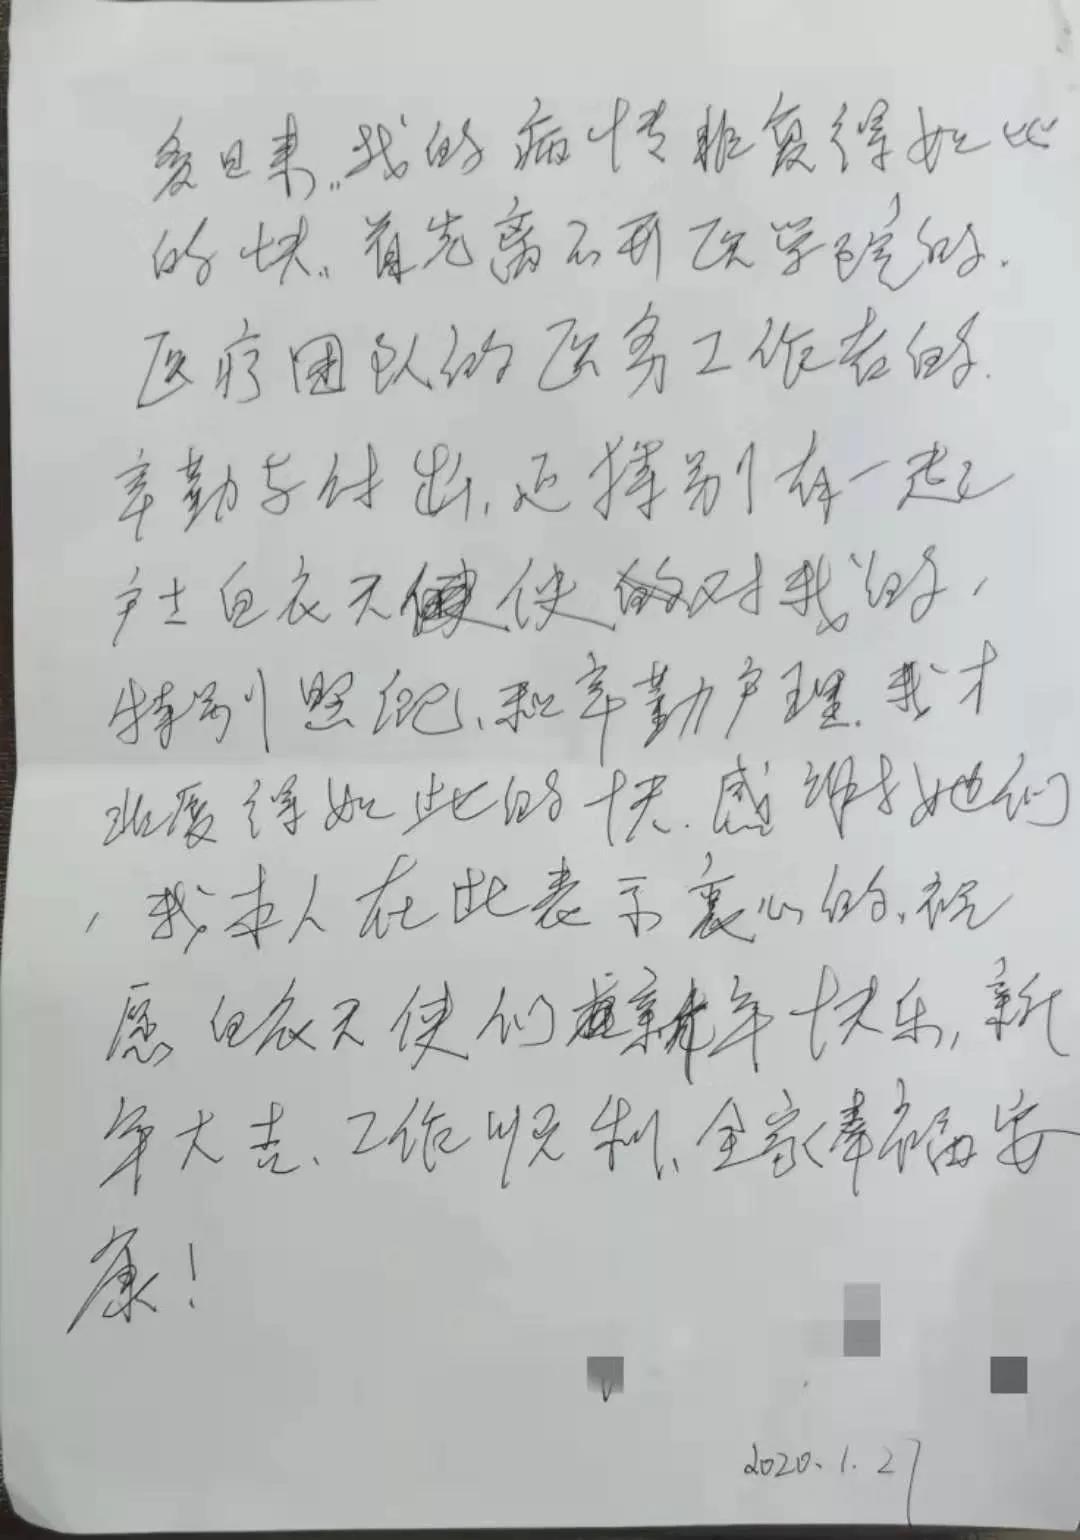 多日来,,我的病情恢复得如此
的快,,首先离不开医学院的.
医疗团队的医务工作者的.
辛勤与付出,还择别有一起
户士白衣天使对我的,
特别照顾、和辛勤户理.我才
恢复得如此的快.感谢她们
,我本人在此表示衷心的,祝
愿白衣天使们新年快乐,新
年大吉、工作顺利、全家幸福安
康!
2020.1.27